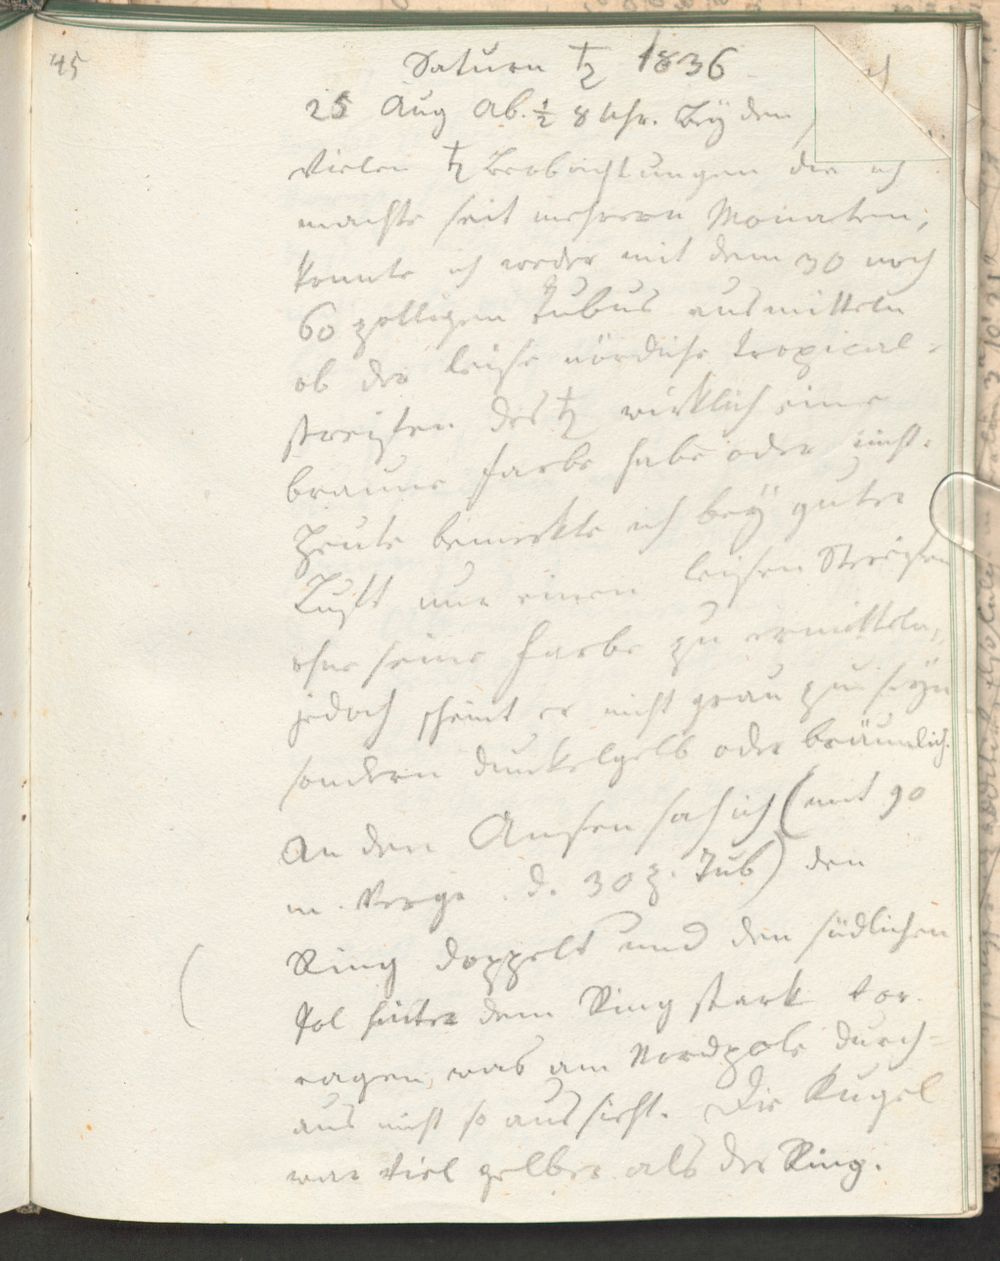 45
Saturn ♄ 1836
25 Aug Ab. ½ 8 Uhr. Bÿ den
vielen ♄ Beobachtungen die ich
machte seit mehrern Monaten,
konnte ich weder mit dem 30 noch
60 zolligen Tubus ausmitteln
ob der leise nördliche tropical-
streifen des ♄ wirklich eine
braune Farbe habe oder nicht.
Heute bemerkte ich beÿ guter
Luft nur einen leisen Streifen
ohne seine Farbe zu ermitteln,
jedoch scheint er nicht grau zu seÿn
sondern dunkelgelb oder bräunlich.
An den Ansen sah ich (mit 90
m. Verge. d. 30 z. Tub) den
Ring doppelt und den südlichen
Pol hinter dem Ring stark vor-
ragen, was am Nordpole durch=
aus nicht so aussieht. Die Kugel
war viel gelber als der Ring.